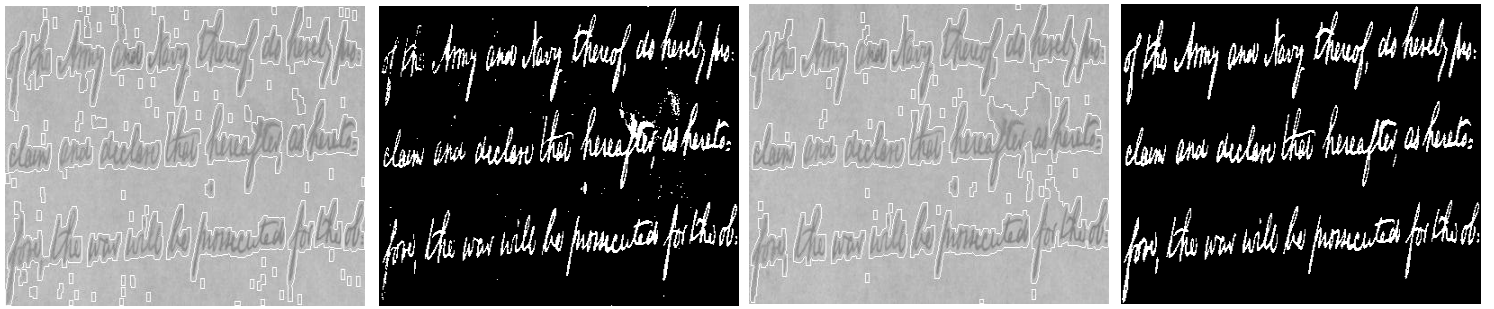 of the Army and Navy thereof, do hereby pro:
claim and declare that hereafter, as hereto:
fore, the war will be prosecuted for the ob:
of the Army and Navy thereof, do hereby pro:
claim and declare that hereafter, as hereto:
fore, the war will be prosecuted for the ob:
of the Army and Navy thereof, do hereby pro:
claim and declare that hereafter, as hereto:
fore, the war will be prosecuted for the ob:
of the Army and Navy thereof, do hereby pro:
claim and declare that hereafter, as hereto:
fore, the war will be prosecuted for the ob: